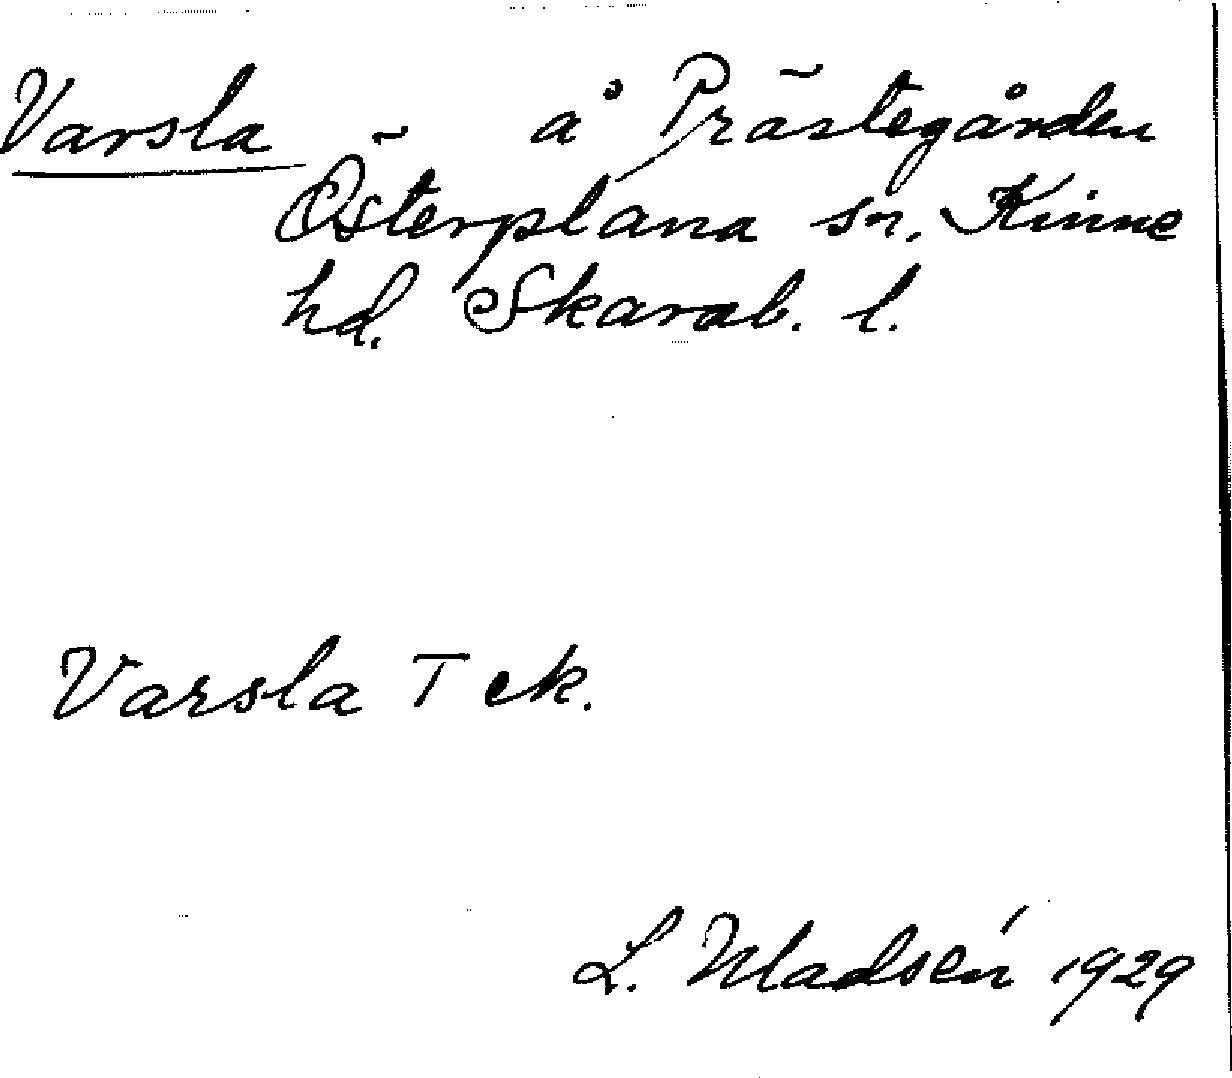 Varsla å Prästegården
Österplana sn, Kinne
hd. Skarab. l.
Varsla T ek.
L. Madsén 1929